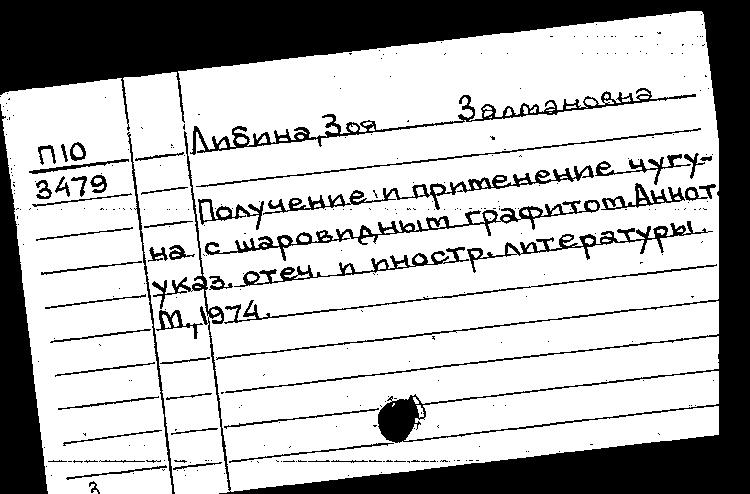 Либина, Зоя Залмановна
П10
3479
Получение и применение чугу-
на с шаровидным графитом. Аннот.
указ. отеч. и иностр. литературы.
М., 1974.
3